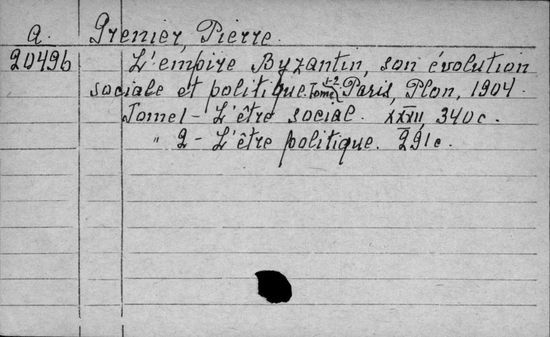 A. Grenier, Pierre.
20496 L'empire Byzantin, son évolution
sociale et politique. Tome 1-2 Paris, Plon, 1904.
Tome 1 - L'être social. XXXII, 340 c.
" 2 - L'être politique. 291 c.